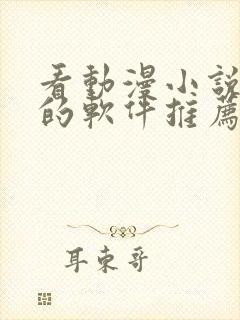 看動漫小說
的軟件推薦
耳東哥